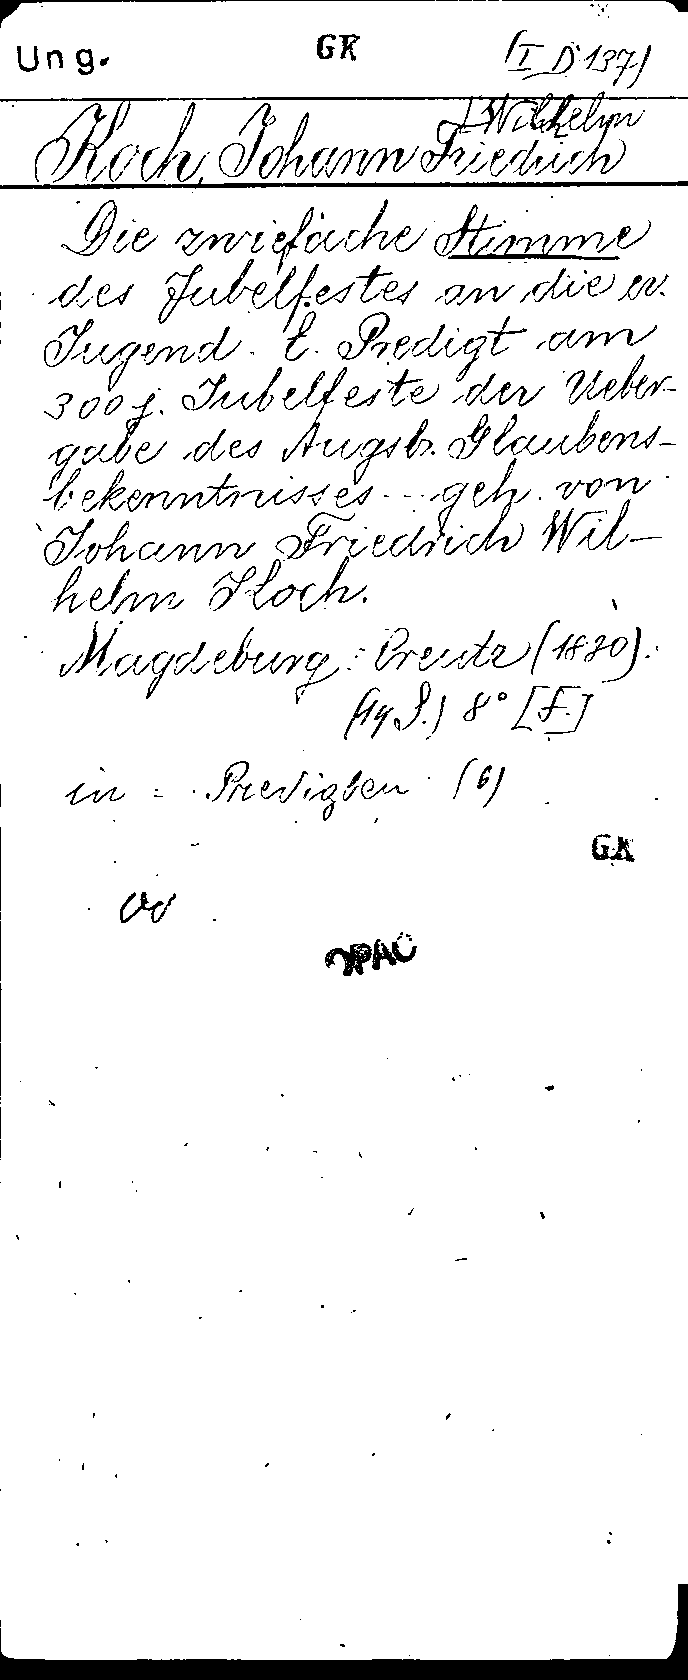 Ung. GK (I D 137)
Wilhelm
Koch, Johann Friedrich
Die zwiefache Stimme
des Jubelfestes an die ev.
Jugend. E. Predigt am
300j. Jubelfeste der Ueber-
gabe des Augsb. Glaubens-
bekenntnisses... geh. von
Johann Friedrich Wil-
helm Koch.
Magdeburg: Creutz (1830).
S.) 8° [F.]
in: Predigten (6)
GK
OPAC